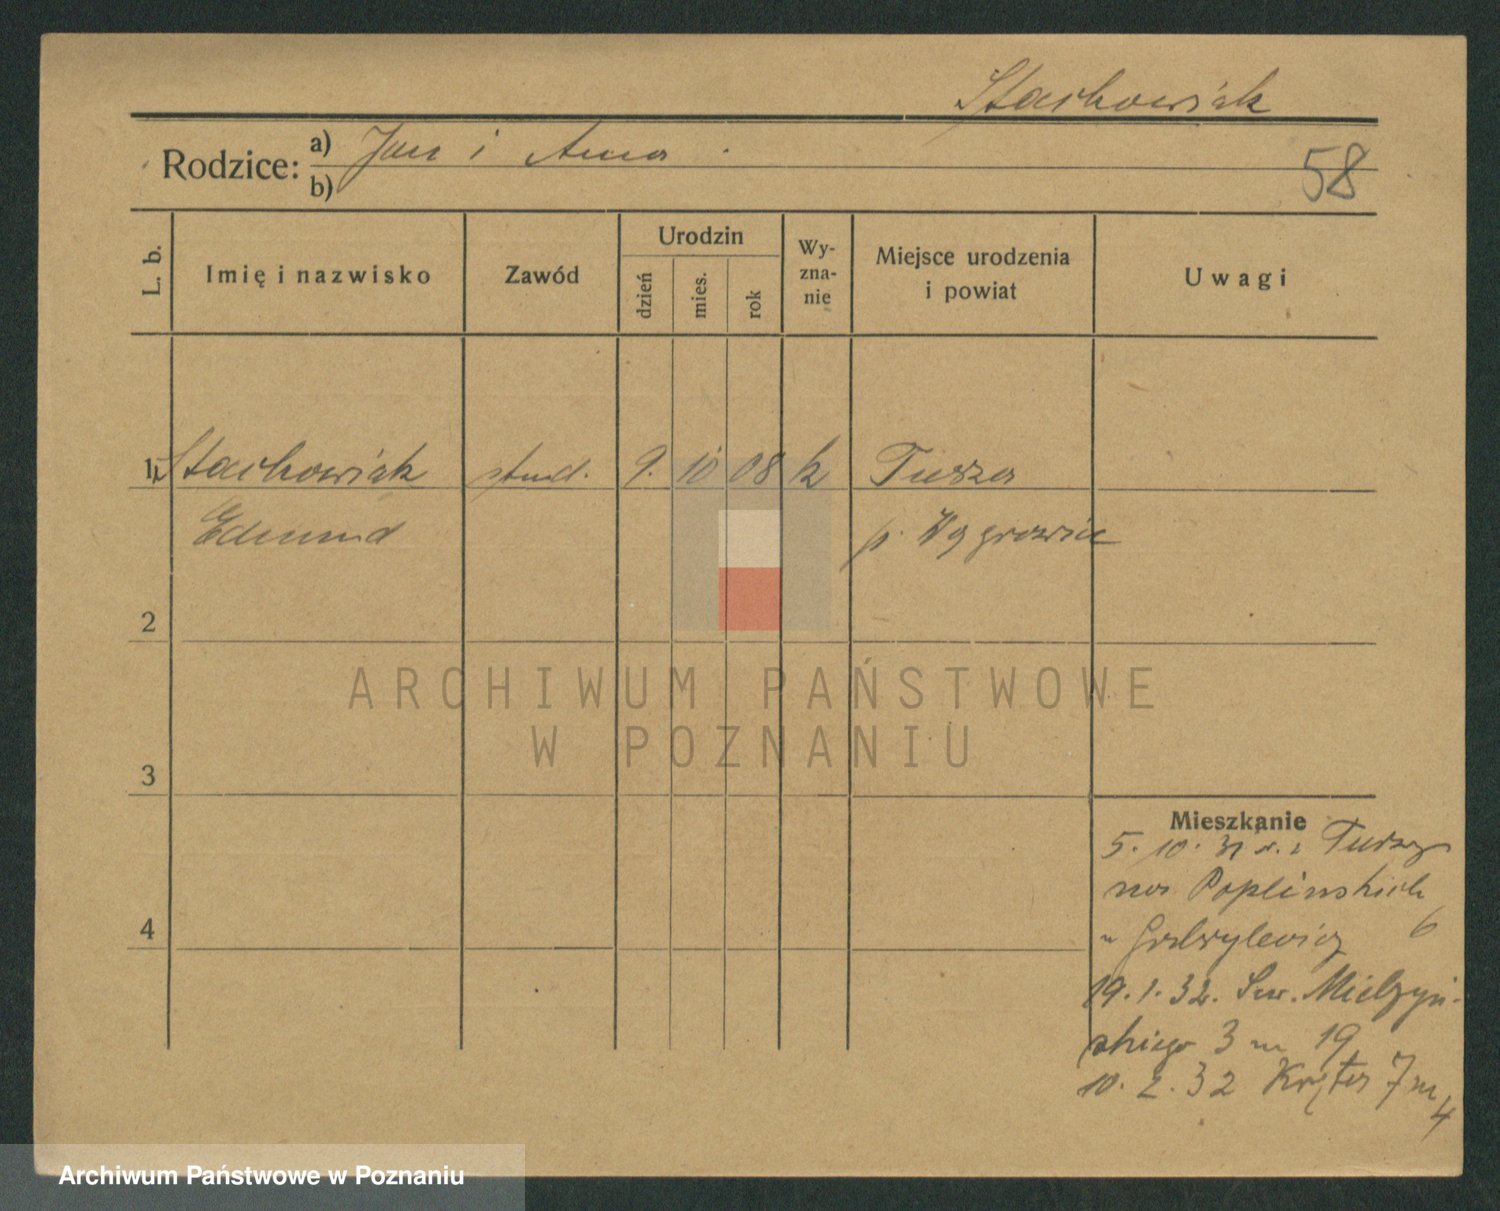 Stachowiak
Rodzice: a) Jan i Anna
b)
58
L. b.
Imię i nazwisko
Zawód
Urodzin
dzień
mies.
rok
Wy-
zna-
nie
Miejsce urodzenia
i powiat
Uwagi
1 Stachowiak stud. 9. 10 08 k Tusza
Edmund p. Wągrowiec
2
3
4
Mieszkanie
5. 10. 31 z Tuszy
na Poplińskich 6
u
19. 1. 32. Sew. Mielżyń-
skiego 3 m 19
10. 2. 32 Kręta 7 m
4
ARCHIWUM PAŃSTWOWE
W POZNANIU
Archiwum Państwowe w Poznaniu